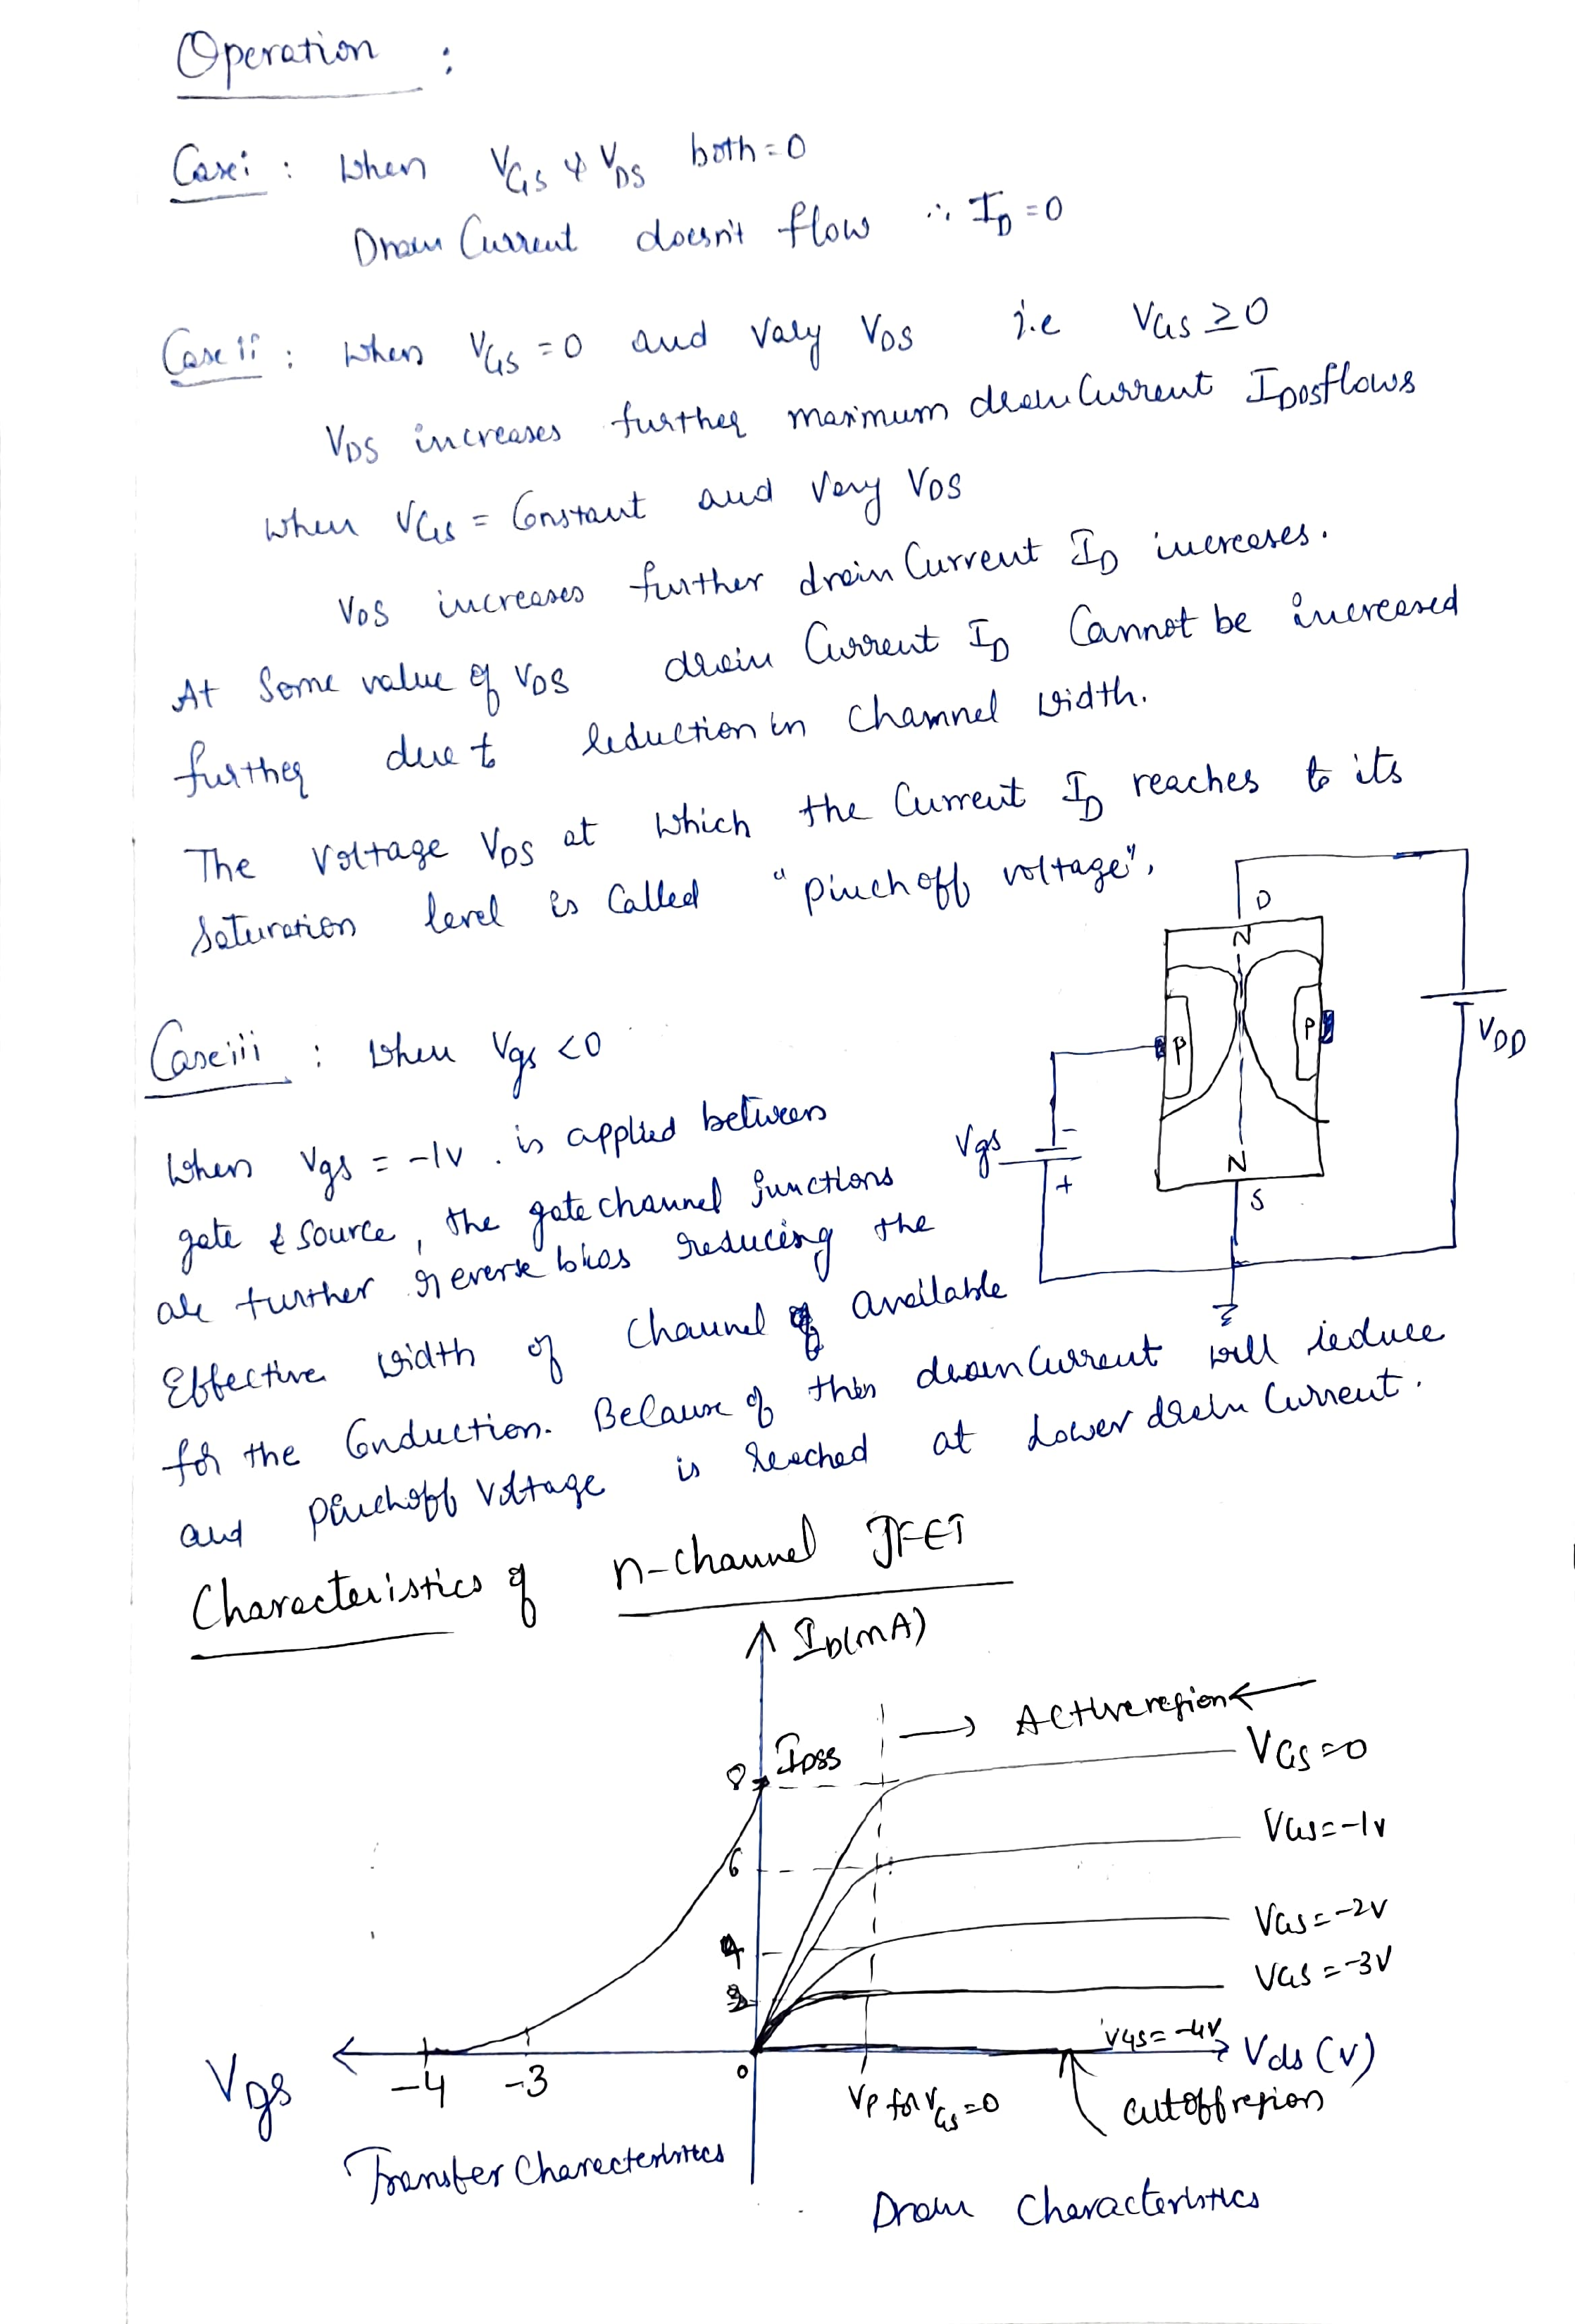 Operation :
Case i : When VGS & VDS both = 0
Drain Current doesn't flow ∴ ID = 0
Case ii : When VGS = 0 and Vary VDS i.e VGS ≥ 0
VDS increases further maximum drain Current IDOSflows
When VGS = Constant and Vary VDS
VDS increases further drain Current ID increases.
At Some value of VDS drain Current ID Cannot be increased
further due to reduction in Channel width.
The Voltage VDS at which the Current ID reaches to its
Saturation level is Called "pinch off voltage",
D
N
P
P
VDD
Case iii : When Vgs <0
When Vgs = -1V . is applied between
gate & Source, the gate channel junctions
are further reverse bias reducing the
Effective width of Channel of available
for the Conduction. Because of this drain Current will reduce
and Pinchoff Voltage is reached at Lower drain Current.
Vgs
-
+
N
S
Characteristics of n-channel JFET
ID(mA)
→ Active region ←
8 IDSS
VGS=0
6
VGS=-1V
4
VGS=-2V
3
VGS=-3V
VGS=-4V
Vds (V)
Vgs
-4 -3 0
VP for VGS=0
cutoff region
Transfer Characteristics
Drain Characteristics